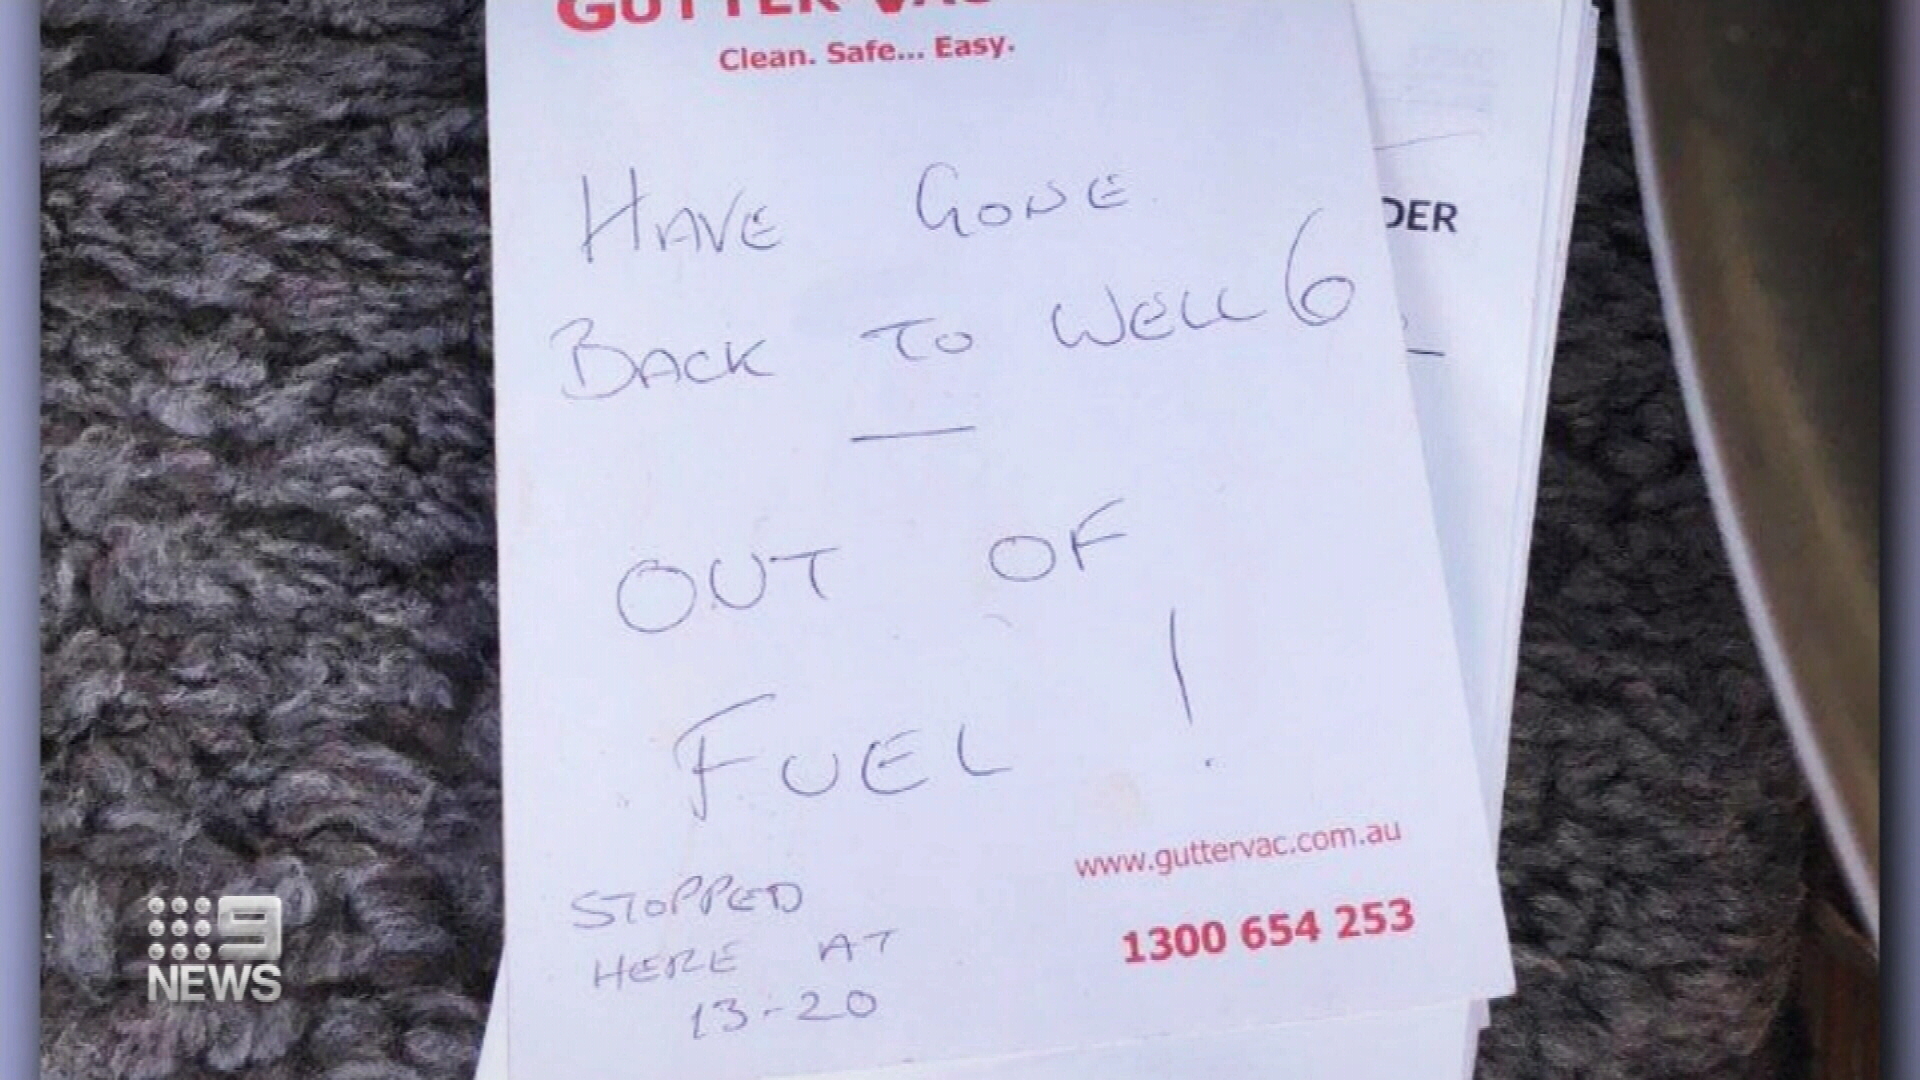 GUTTER VAC
Clean. Safe... Easy.
HAVE GONE
BACK TO WELL 6
OUT OF
FUEL !
STOPPED
HERE AT
13-20
www.guttervac.com.au
1300 654 253
DER
9
NEWS